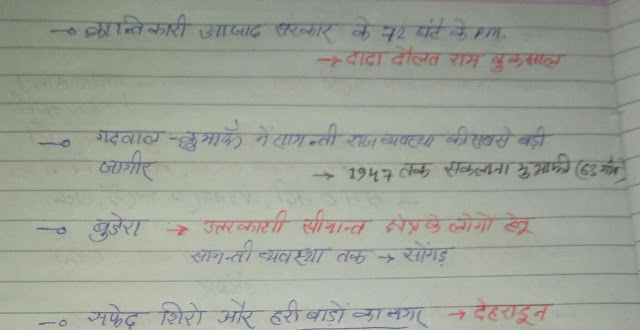 → क्रान्तिकारी आजाद सरकार के 72 घंटे के P.M.
→ दादा दौलत राम कुकसाल
→ गढवाल - कुमाऊँ में सामन्ती राजव्यवस्था की सबसे बड़ी
जागीर → 1947 तक सकलाना मुआफी (63 गाँव)
→ बुडेरा → उत्तरकाशी सीमान्त क्षेत्र के लोगों हेतु
सामन्ती व्यवस्था तक → सोंगड़
→ सफेद शिरो और हरी बाड़ों का नगर → देहरादून